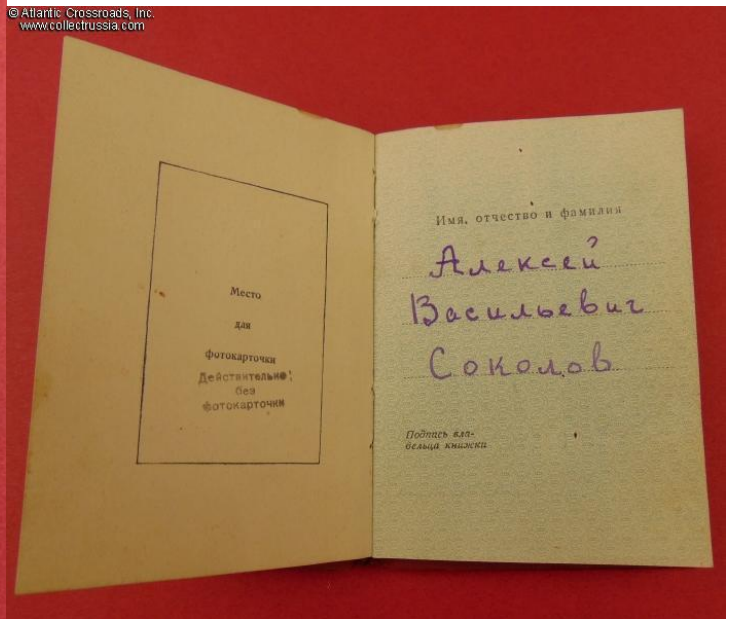 © Atlantic Crossroads, Inc.
www.collectrussia.com
Место
для
фотокарточки
Действительно
без
фотокарточки
Имя, отчество и фамилия
Алексей
Васильевич
Соколов
Подпись вла-
дельца книжки